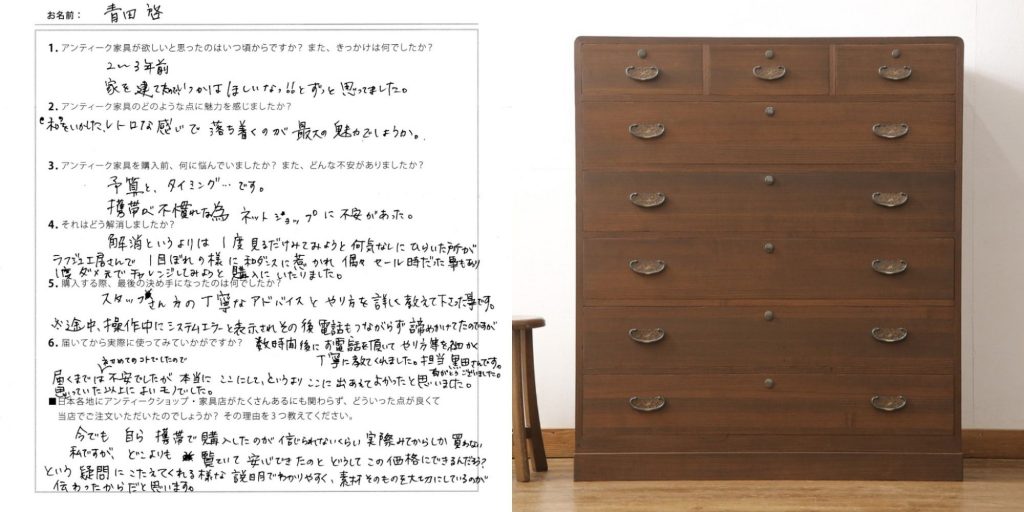 お名前： 青田 啓
1. アンティーク家具が欲しいと思ったのはいつ頃からですか？また、きっかけは何でしたか？
2〜3年前
家を建て いつかはほしいなっとずっと思ってました。
2. アンティーク家具のどのような点に魅力を感じましたか？
"和"をいかした、レトロな感じで 落ち着くのが 最大の魅力でしょうか。
3. アンティーク家具を購入前、何に悩んでいましたか？また、どんな不安がありましたか？
予算と、タイミング…です。
携帯が不慣れな為 ネットショップに不安があった。
4. それはどう解消しましたか？
解消というよりは 1度見るだけみてみようと何気なしにひらいた所が
ラフジュ工房さんで 1目ぼれの様に和ダンスに惹かれ 偶々セール時だった事もあり
1度ダメ元でチャレンジしてみようと購入にいたりました。
5. 購入する際、最後の決め手になったのは何でしたか？
スタッフさん方の丁寧なアドバイスとやり方を詳しく教えて下さった事です。
※途中、操作中にシステムエラーと表示されその後電話もつながらず諦めかけてたのですが
6. 届いてから実際に使ってみていかがですか？ 数時間後にお電話を頂いてやり方等を細かく
丁寧に教えてくれました。担当 黒田さんです。
ありがとうございました。
はじめてのコトでしたので
届くまでは不安でしたが 本当に ここにして、というより ここに出あえてよかったと思いました。
思っていた以上によいモノでした。
■日本各地にアンティークショップ・家具店がたくさんあるにも関わらず、どういった点が良くて
当店でご注文いただいたのでしょうか？その理由を３つ教えてください。
今でも 自ら 携帯で購入したのが 信じられないくらい 実際みてからしか 買わない
私ですが、どこよりも 覧ていて 安心できたのと どうしてこの価格にできるんだろう？
という 疑問にこたえてくれる様な 説明でわかりやすく、素材そのものを大切にしているのが
伝わったからだと思います。